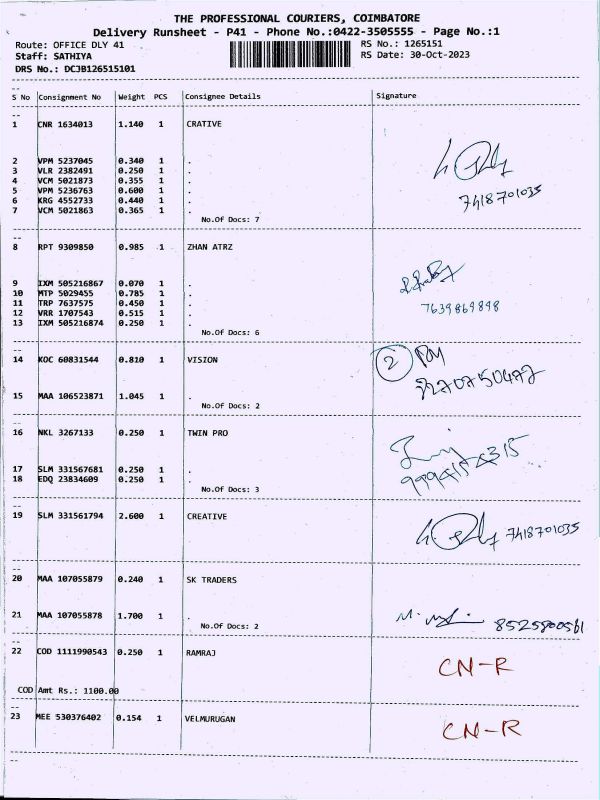 THE PROFESSIONAL COURIERS, COIMBATORE
Delivery Runsheet - P41 - Phone No.:0422-3505555 - Page No.:1
Route: OFFICE DLY 41 RS No.: 1265151
Staff: SATHIYA RS Date: 30-Oct-2023
DRS No.: DCJB126515101
--
S No Consignment No Weight PCS Consignee Details Signature
--
1 CNR 1634013 1.140 1 CRATIVE
2 VPM 5237045 0.340 1 .
3 VLR 2382491 0.250 1 .
4 VCM 5021873 0.355 1 .
5 VPM 5236763 0.600 1 .
6 KRG 4552733 0.440 1 .
7 VCM 5021863 0.365 1 .
7418701035
No.Of Docs: 7
--
8 RPT 9309850 0.985 1 ZHAN ATRZ
9 IXM 505216867 0.070 1 .
10 MTP 5029455 0.785 1 .
11 TRP 7637575 0.450 1 .
12 VRR 1707543 0.515 1 .
13 IXM 505216874 0.250 1 .
7639869898
No.Of Docs: 6
--
14 KOC 60831544 0.810 1 VISION
2
15 MAA 106523871 1.045 1 .
No.Of Docs: 2
--
16 NKL 3267133 0.250 1 TWIN PRO
17 SLM 331567681 0.250 1 .
18 EDQ 23834609 0.250 1 .
No.Of Docs: 3
--
19 SLM 331561794 2.600 1 CREATIVE
7418701035
--
20 MAA 107055879 0.240 1 SK TRADERS
21 MAA 107055878 1.700 1 .
No.Of Docs: 2
8525800561
--
22 COD 1111990543 0.250 1 RAMRAJ
CN-R
COD Amt Rs.: 1100.00
--
23 MEE 530376402 0.154 1 VELMURUGAN
CN-R
--